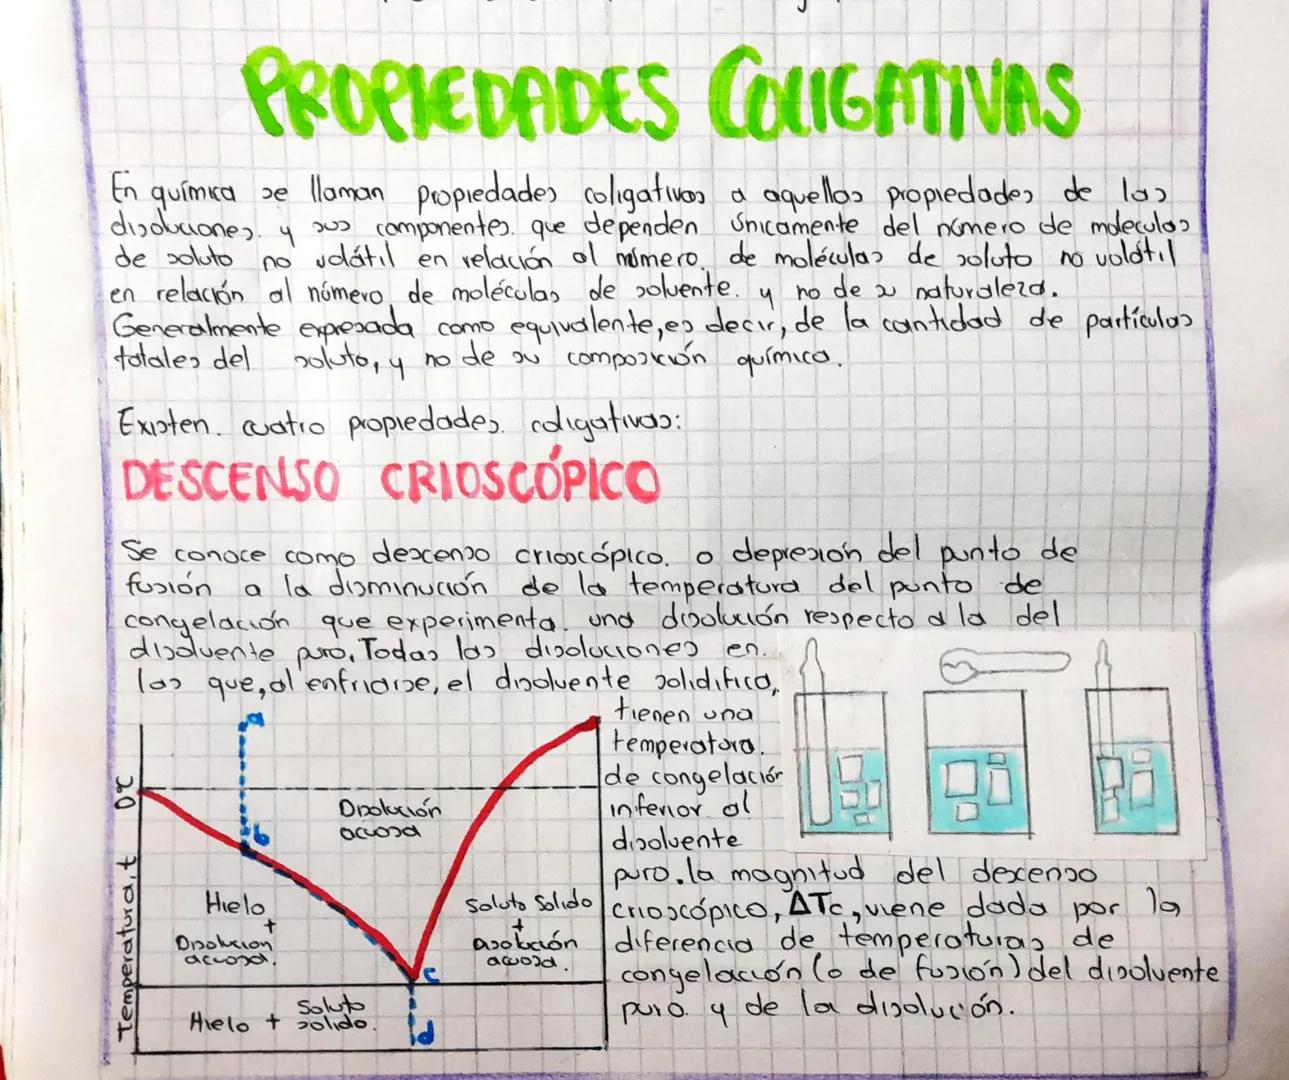 PROPIEDADES COLIGATIVAS
En química se llaman propiedades coligativas a aquellas propiedades de las
disoluciones y sus componentes que dependen únicamente del número de moleculas
de soluto no volátil en relación al número de moléculas de soluto no volátil
en relación al número de moléculas de solvente y no de su naturaleza.
Generalmente expresada como equivalente, es decir, de la cantidad de partículas
totales del soluto, y no de su composición química.
Existen cuatro propiedades coligativas:
DESCENSO CRIOSCÓPICO
Se conoce como descenso crioscópico o depresión del punto de
fusión a la disminución de la temperatura del punto de
congelación que experimenta una disolución respecto a la del
disolvente puro. Todas las disoluciones en
las que, al enfriarse, el disolvente solidifica,
tienen una
temperatura
de congelación
inferior al
disolvente
puro. la magnitud del descenso
crioscópico, ΔTc, viene dada por la
diferencia de temperaturas de
congelación (o de fusión) del disolvente
puro y de la disolución.
Temperatura, t 0°C
a
b
Disolución
acuosa
Hielo
+
Disolucion
acuosa.
Soluto Solido
+
disolución
acuosa.
c
Hielo + Soluto
solido.
d